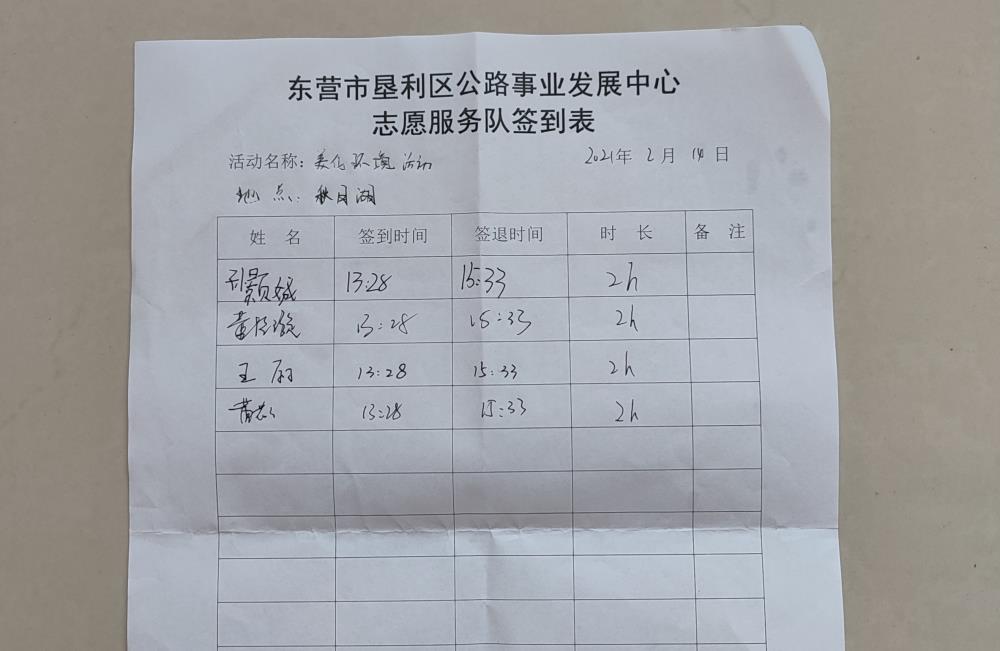 东营市垦利区公路事业发展中心
志愿服务队签到表
活动名称：美化环境活动 2021年 2月 14日
地点：秋月湖
姓 名 签到时间 签退时间 时 长 备 注
13:28 15:33 2h
黄 13:28 15:33 2h
王 13:28 15:33 2h
黄 13:28 15:33 2h